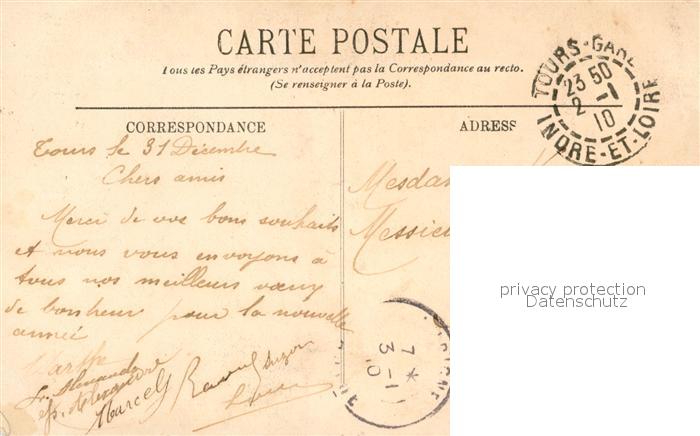 CARTE POSTALE
Tous les Pays étrangers n'acceptent pas la Correspondance au recto.
(Se renseigner à la Poste).
TOURS-GARE
23 50
2 -1
10
INDRE-ET-LOIRE
CORRESPONDANCE
ADRESS
Tours le 31 Décembre
Chers amis
Merci de vos bons souhaits
et nous vous envoyons à
tous nos meilleurs vœux
de bonheur pour la nouvelle
année
Marthe
Marcel
Raoul
Suzon
Mesda
Messieu
privacy protection
Datenschutz
7 *
3 -1
10